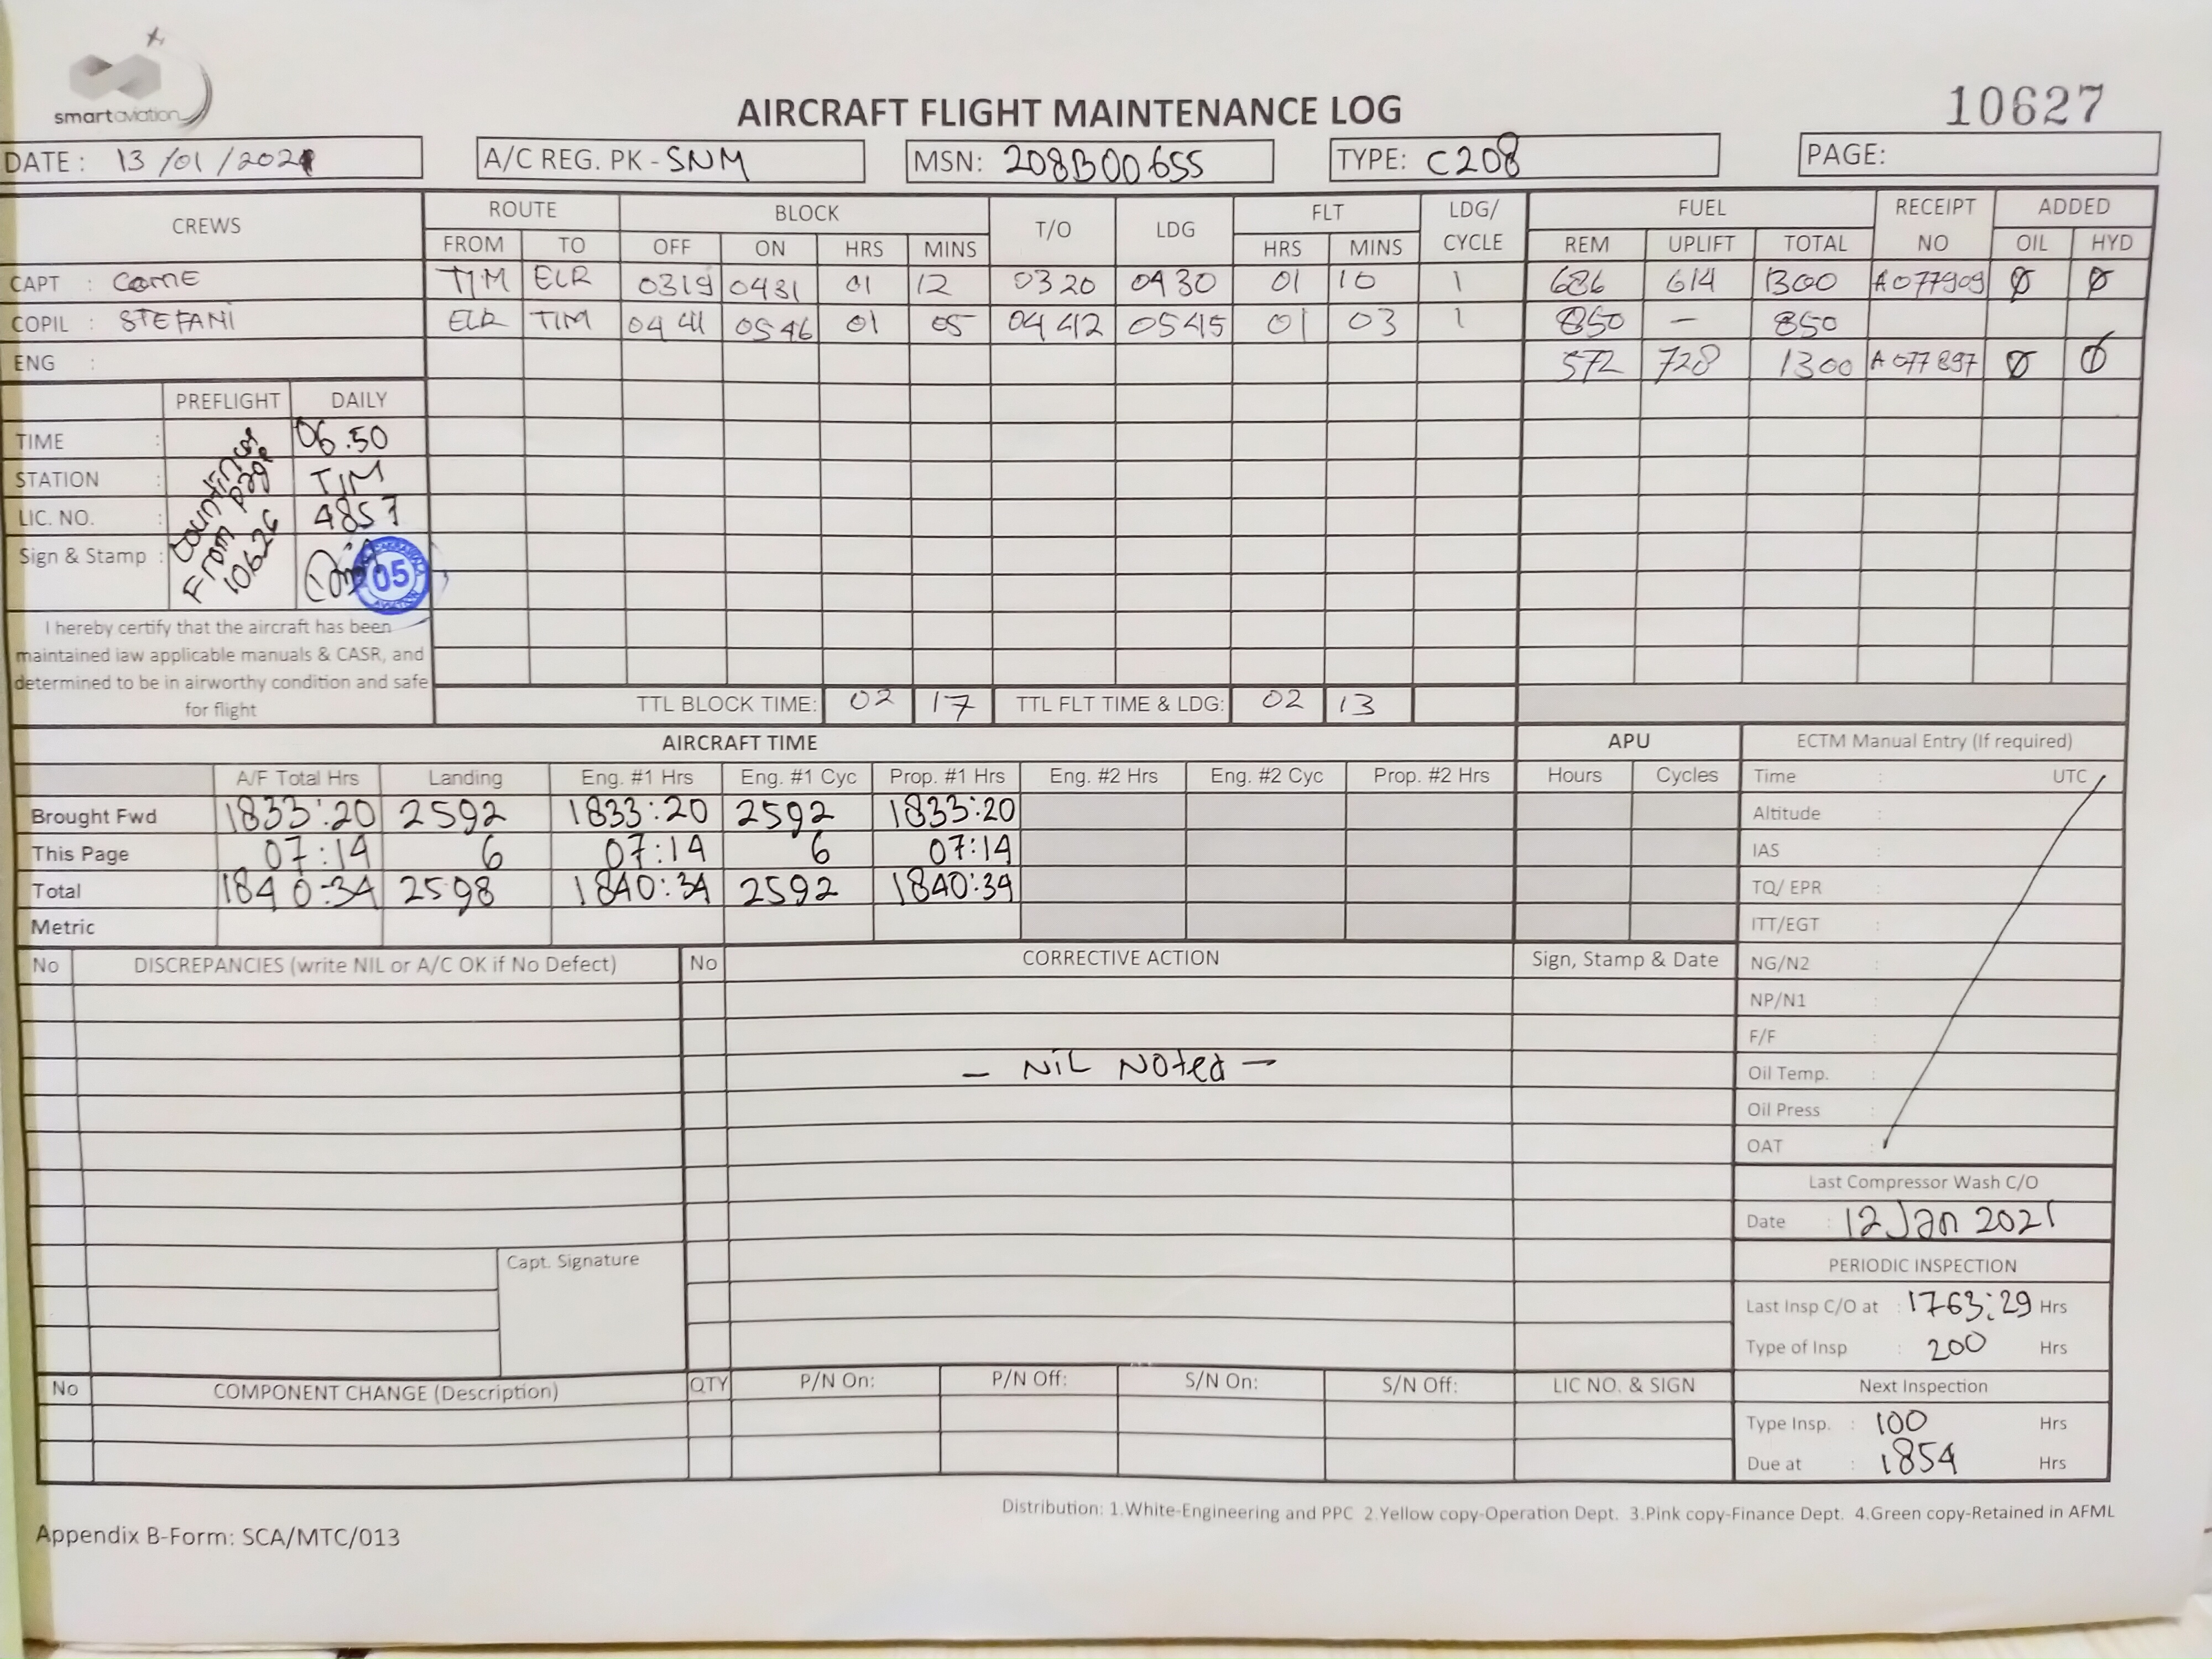 smartaviation
AIRCRAFT FLIGHT MAINTENANCE LOG
10627
DATE : 13/01/2021
A/C REG. PK - SNM
MSN: 208B00655
TYPE: C208
PAGE:
CREWS ROUTE BLOCK T/O LDG FLT LDG/ CYCLE FUEL RECEIPT NO ADDED
FROM TO OFF ON HRS MINS HRS MINS REM UPLIFT TOTAL OIL HYD
CAPT : COME TIM ELR 0319 0431 01 12 0320 0430 01 10 1 686 614 1300 A077909 Ø Ø
COPIL : STEFANI ELR TIM 0441 0546 01 05 0442 0545 01 03 1 850 — 850
ENG : 572 728 1300 A077897 Ø Ø
PREFLIGHT DAILY
TIME : 06.50
STATION : TIM
LIC. NO. : 4857
Sign & Stamp : From page 10626
05
I hereby certify that the aircraft has been
maintained iaw applicable manuals & CASR, and
determined to be in airworthy condition and safe
for flight
TTL BLOCK TIME: 02 17 TTL FLT TIME & LDG: 02 13
AIRCRAFT TIME APU ECTM Manual Entry (If required)
A/F Total Hrs Landing Eng. #1 Hrs Eng. #1 Cyc Prop. #1 Hrs Eng. #2 Hrs Eng. #2 Cyc Prop. #2 Hrs Hours Cycles Time : UTC
Brought Fwd 1833:20 2592 1833:20 2592 1833:20 Altitude :
This Page 07:14 6 07:14 6 07:14 IAS :
Total 1840:34 2598 1840:34 2592 1840:34 TQ/ EPR :
Metric ITT/EGT :
No DISCREPANCIES (write NIL or A/C OK if No Defect) No CORRECTIVE ACTION Sign, Stamp & Date NG/N2 :
NP/N1 :
F/F :
— NiL Noted —
Oil Temp. :
Oil Press :
OAT :
Last Compressor Wash C/O
Date : 12 Jan 2021
Capt. Signature
PERIODIC INSPECTION
Last Insp C/O at : 1763:29 Hrs
Type of Insp : 200 Hrs
No COMPONENT CHANGE (Description) QTY P/N On: P/N Off: S/N On: S/N Off: LIC NO. & SIGN Next Inspection
Type Insp. : 100 Hrs
Due at : 1854 Hrs
Distribution: 1.White-Engineering and PPC 2.Yellow copy-Operation Dept. 3.Pink copy-Finance Dept. 4.Green copy-Retained in AFML
Appendix B-Form: SCA/MTC/013